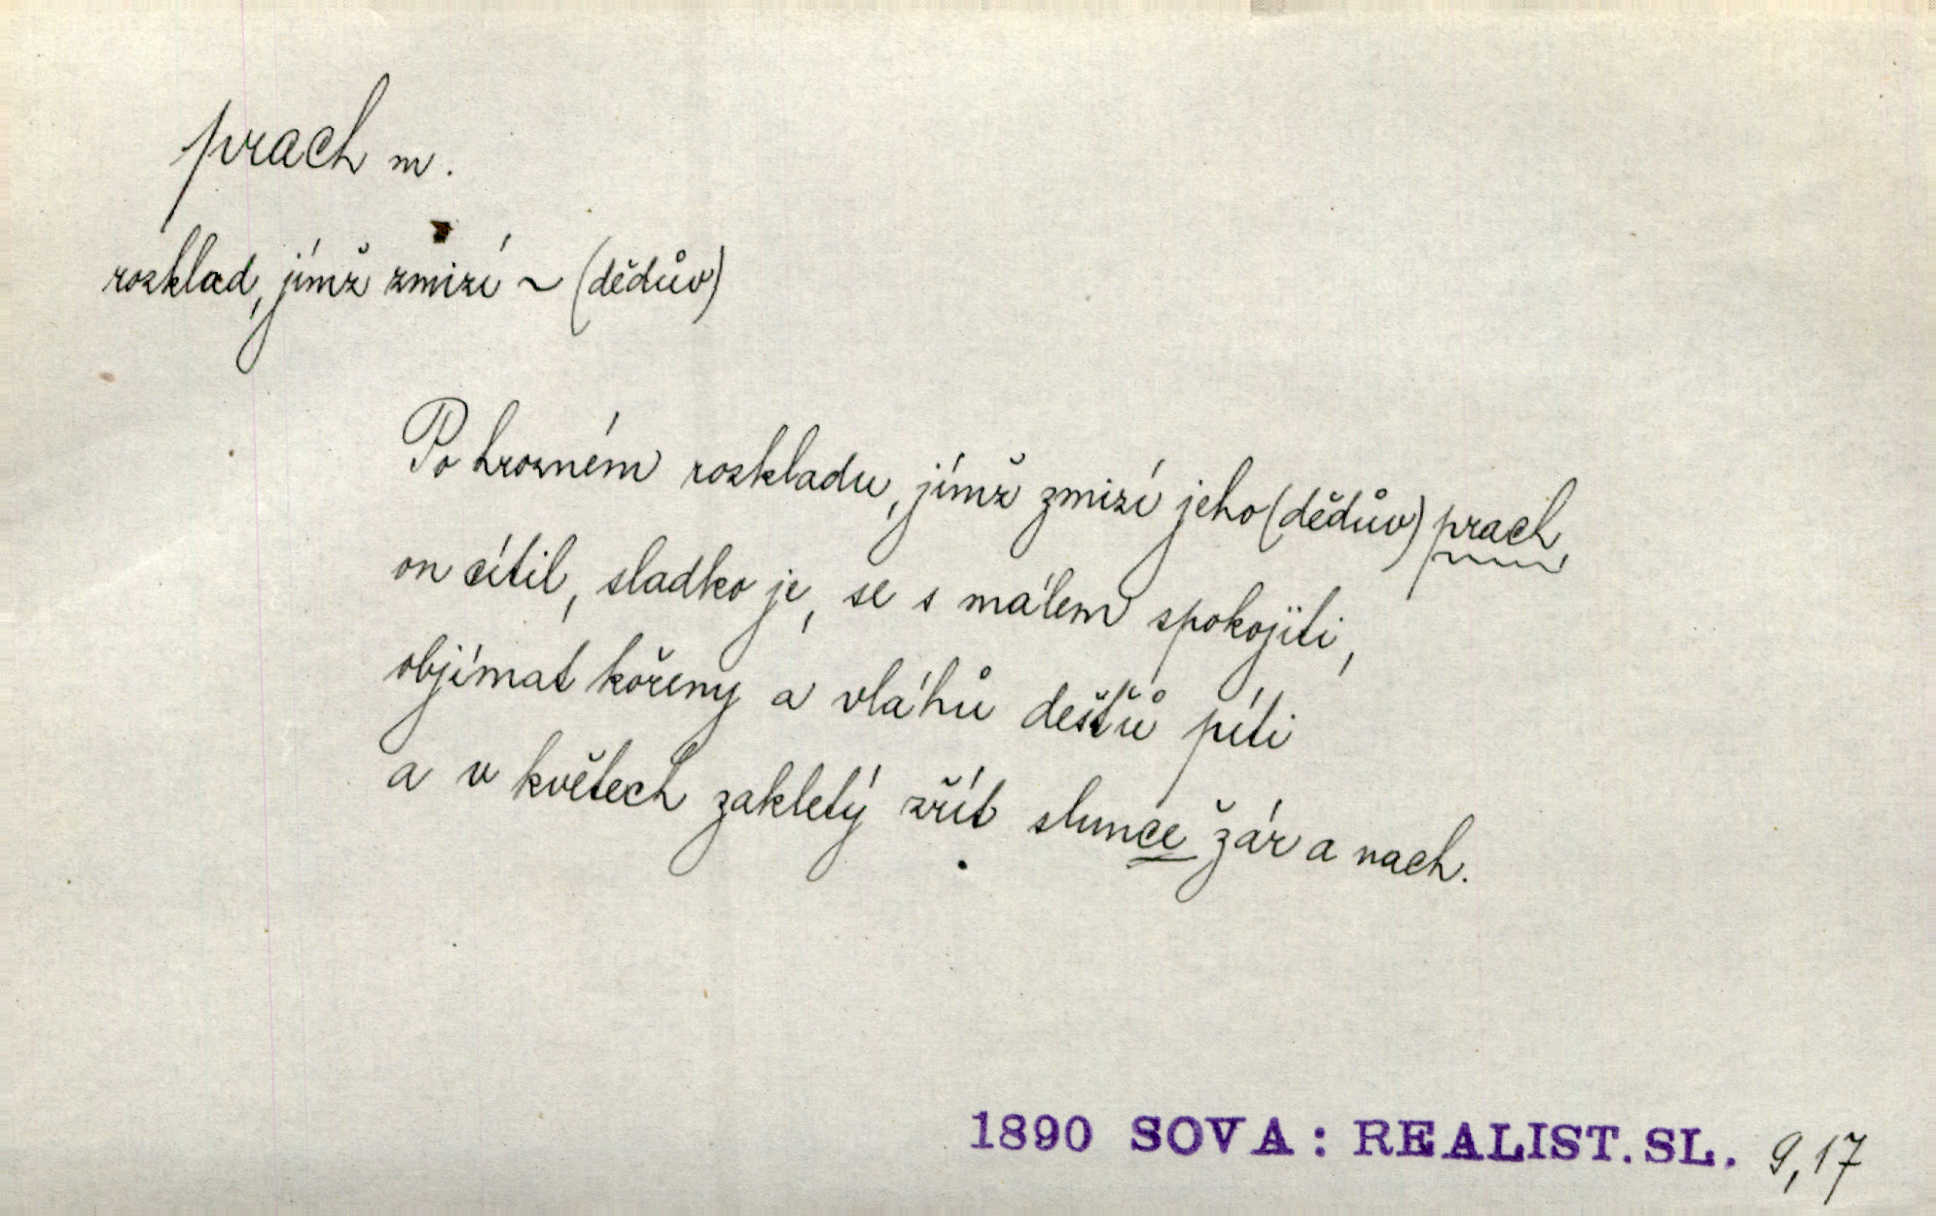 prach m.
rozklad, jímž zmizí ~ (dědův)
Po hrozném rozkladu, jímž zmizí jeho (dědův) prach,
on cítil, sladko je, se s málem spokojiti,
objímat kořeny a vláhů dešťů píti
a v květech zakletý zřít slunce žár a nach.
1890 SOVA: REALIST. SL. 9,17